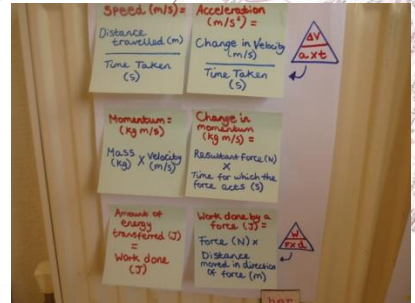 Speed (m/s) =
Distance
travelled (m)
Time Taken
(s)
Acceleration
(m/s²) =
Change in Velocity
(m/s)
Time Taken
(s)
ΔV
a x t
Momentum =
(kg m/s)
Mass x Velocity
(kg) (m/s)
Change in
momentum
(kg m/s) =
Resultant force (N)
x
Time for which the
force acts (s)
Amount of
energy
transferred (J)
=
Work done
(J)
Work done by a
force (J) =
Force (N) x
Distance
moved in direction
of force (m)
W
F x d